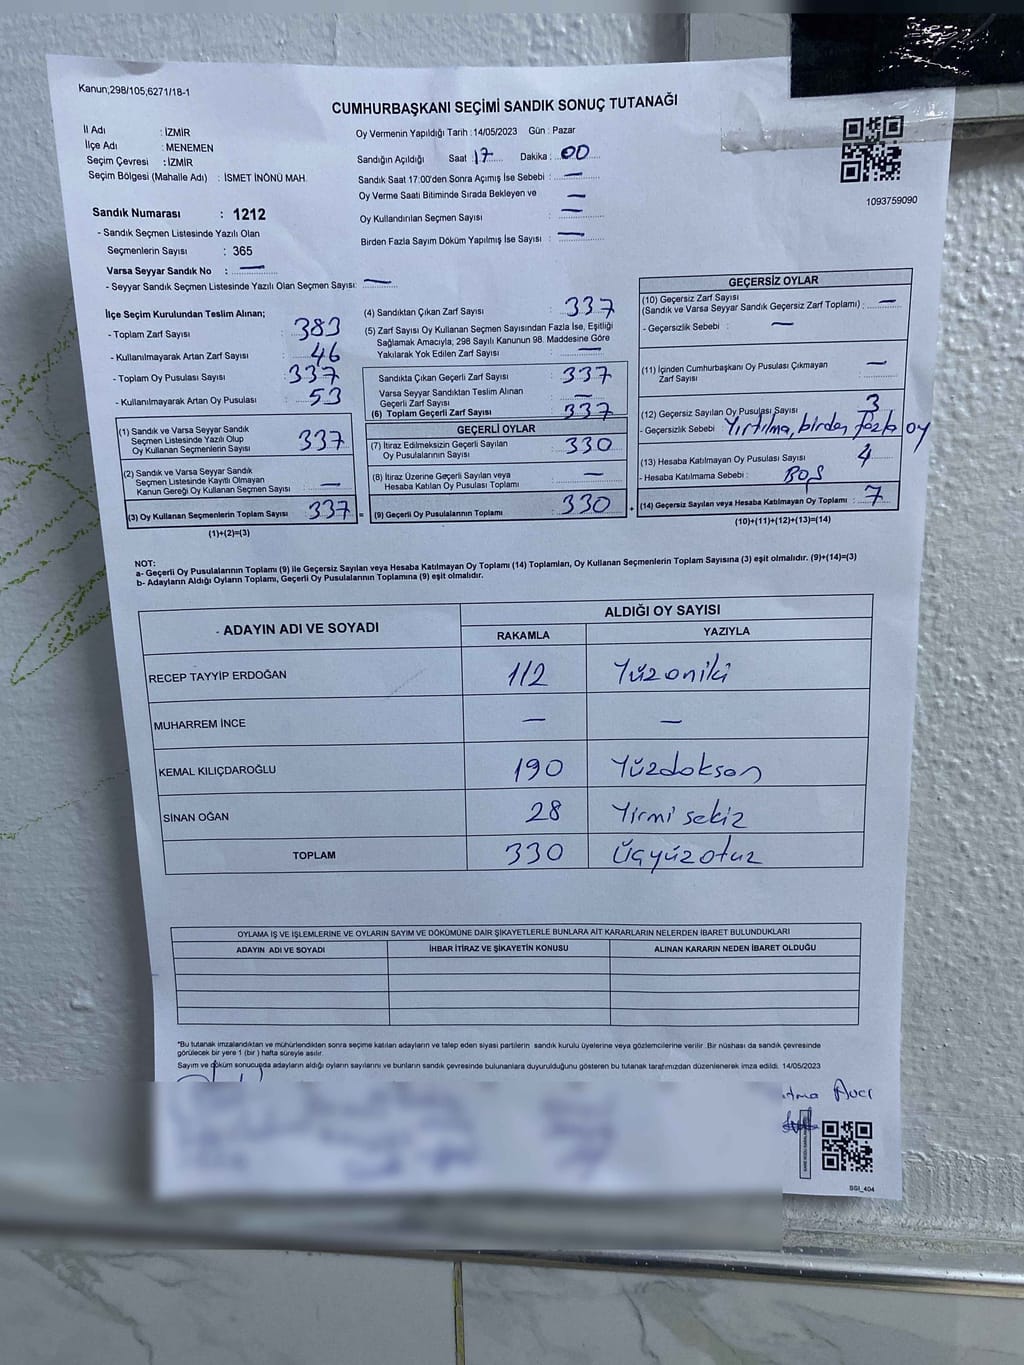 Kanun;298/105,6271/18-1
CUMHURBAŞKANI SEÇİMİ SANDIK SONUÇ TUTANAĞI
İl Adı : İZMİR
İlçe Adı : MENEMEN
Seçim Çevresi : İZMİR
Seçim Bölgesi (Mahalle Adı) : İSMET İNÖNÜ MAH.
Sandık Numarası : 1212
- Sandık Seçmen Listesinde Yazılı Olan
Seçmenlerin Sayısı : 365
Varsa Seyyar Sandık No : —
- Seyyar Sandık Seçmen Listesinde Yazılı Olan Seçmen Sayısı: —
Oy Vermenin Yapıldığı Tarih : 14/05/2023 Gün : Pazar
Sandığın Açıldığı Saat : 17 Dakika : 00
Sandık Saat 17:00'den Sonra Açımış İse Sebebi : —
Oy Verme Saati Bitiminde Sırada Bekleyen ve —
Oy Kullandırılan Seçmen Sayısı : —
Birden Fazla Sayım Döküm Yapılmış İse Sayısı : —
1093759090
İlçe Seçim Kurulundan Teslim Alınan;
- Toplam Zarf Sayısı : 383
- Kullanılmayarak Artan Zarf Sayısı : 46
- Toplam Oy Pusulası Sayısı : 337
- Kullanılmayarak Artan Oy Pusulası : 53
(1) Sandık ve Varsa Seyyar Sandık
Seçmen Listesinde Yazılı Olup
Oy Kullanan Seçmenlerin Sayısı : 337
(2) Sandık ve Varsa Seyyar Sandık
Seçmen Listesinde Kayıtlı Olmayan
Kanun Gereği Oy Kullanan Seçmen Sayısı : —
(3) Oy Kullanan Seçmenlerin Toplam Sayısı : 337 =
(1)+(2)=(3)
(4) Sandıktan Çıkan Zarf Sayısı : 337
(5) Zarf Sayısı Oy Kullanan Seçmen Sayısından Fazla İse, Eşitliği
Sağlamak Amacıyla, 298 Sayılı Kanunun 98. Maddesine Göre
Yakılarak Yok Edilen Zarf Sayısı : —
Sandıkta Çıkan Geçerli Zarf Sayısı : 337
Varsa Seyyar Sandıktan Teslim Alınan
Geçerli Zarf Sayısı : —
(6) Toplam Geçerli Zarf Sayısı : 337
GEÇERLİ OYLAR
(7) İtiraz Edilmeksizin Geçerli Sayılan
Oy Pusulalarının Sayısı : 330
(8) İtiraz Üzerine Geçerli Sayılan veya
Hesaba Katılan Oy Pusulası Toplamı : —
(9) Geçerli Oy Pusulalarının Toplamı : 330 +
GEÇERSİZ OYLAR
(10) Geçersiz Zarf Sayısı
(Sandık ve Varsa Seyyar Sandık Geçersiz Zarf Toplamı) : —
- Geçersizlik Sebebi : —
(11) İçinden Cumhurbaşkanı Oy Pusulası Çıkmayan
Zarf Sayısı : —
(12) Geçersiz Sayılan Oy Pusulası Sayısı : 3
- Geçersizlik Sebebi : Yırtılma, birden fazla oy
(13) Hesaba Katılmayan Oy Pusulası Sayısı : 4
- Hesaba Katılmama Sebebi : BOŞ
(14) Geçersiz Sayılan veya Hesaba Katılmayan Oy Toplamı : 7
(10)+(11)+(12)+(13)=(14)
NOT:
a- Geçerli Oy Pusulalarının Toplamı (9) ile Geçersiz Sayılan veya Hesaba Katılmayan Oy Toplamı (14) Toplamları, Oy Kullanan Seçmenlerin Toplam Sayısına (3) eşit olmalıdır. (9)+(14)=(3)
b- Adayların Aldığı Oyların Toplamı, Geçerli Oy Pusulalarının Toplamına (9) eşit olmalıdır.
- ADAYIN ADI VE SOYADI
ALDIĞI OY SAYISI
RAKAMLA YAZIYLA
RECEP TAYYİP ERDOĞAN 112 Yüzoniki
MUHARREM İNCE — —
KEMAL KILIÇDAROĞLU 190 Yüzdoksan
SİNAN OĞAN 28 Yirmi sekiz
TOPLAM 330 Üçyüzotuz
OYLAMA İŞ VE İŞLEMLERİNE VE OYLARIN SAYIM VE DÖKÜMÜNE DAİR ŞİKAYETLERLE BUNLARA AİT KARARLARIN NELERDEN İBARET BULUNDUKLARI
ADAYIN ADI VE SOYADI İHBAR İTİRAZ VE ŞİKAYETİN KONUSU ALINAN KARARIN NEDEN İBARET OLDUĞU
*Bu tutanak imzalandıktan ve mühürlendikten sonra seçime katılan adayların ve talep eden siyasi partilerin sandık kurulu üyelerine veya gözlemcilerine verilir. Bir nüshası da sandık çevresinde
görülecek bir yere 1 (bir) hafta süreyle asılır.
Sayım ve döküm sonucunda adayların aldığı oyların sayılarını ve bunların sandık çevresinde bulunanlara duyurulduğunu gösteren bu tutanak tarafımızdan düzenlenerek imza edildi. 14/05/2023
Avcı
SGI_404